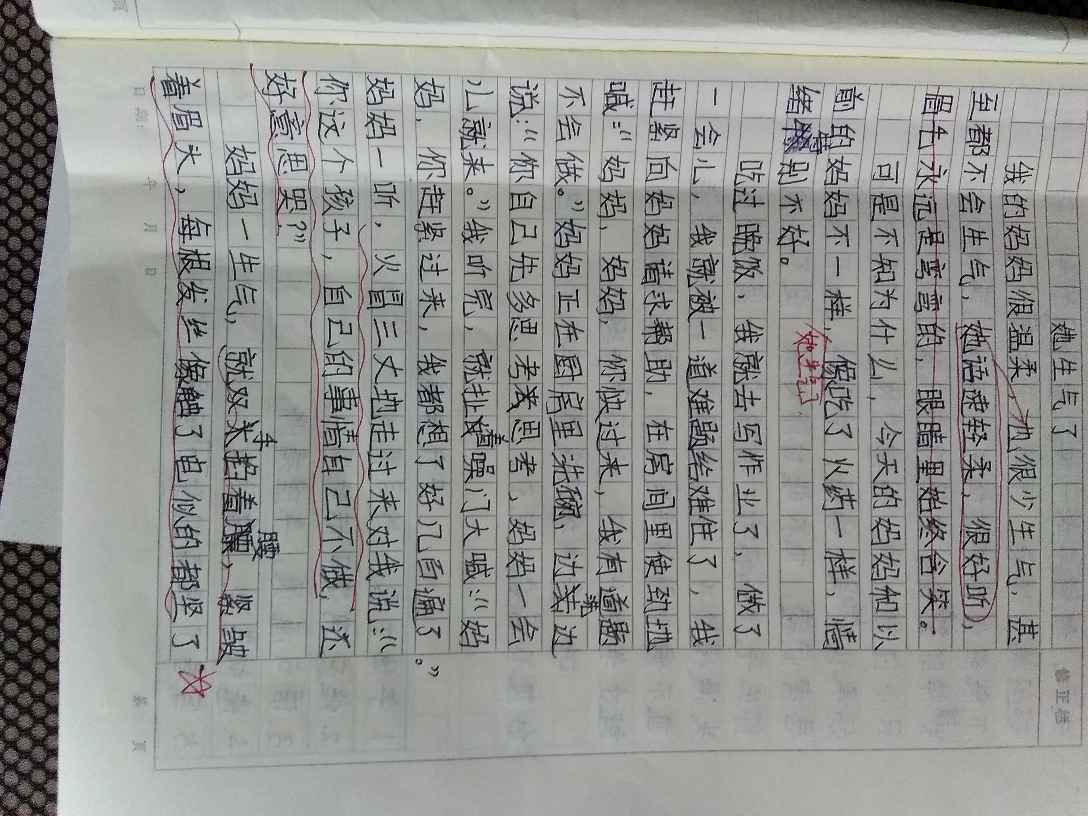 她生气了
我的妈妈很温柔，也很少生气，甚
至都不会生气，她话速轻柔，很好听，
眉毛永远是弯弯的，眼睛里始终含笑。
可是不知为什么，今天的妈妈和以
前的妈妈不一样，像吃了火药一样，情
她生气了
绪特别不好。
吃过晚饭，我就去写作业了，做了
一会儿，我就被一道难题给难住了，我
赶紧向妈妈请求帮助，在房间里使劲地
喊：“妈妈，妈妈，你快过来，我有道题
不会做。”妈妈正在厨房里洗碗，边洗边
说：“你自己先多思考思考，妈妈一会
儿就来。”我听完，就扯着嗓门大喊：“妈
妈，你赶紧过来，我都想了好几百遍了。”
妈妈一听，火冒三丈地走过来对我说：“
你这个孩子，自己的事情自己不做，还
好意思哭？”
妈妈一生气，就双手把着腰，皱
着眉头，每根发丝像触了电似的都竖了
修正栏
日期：
年
月
日
第
页